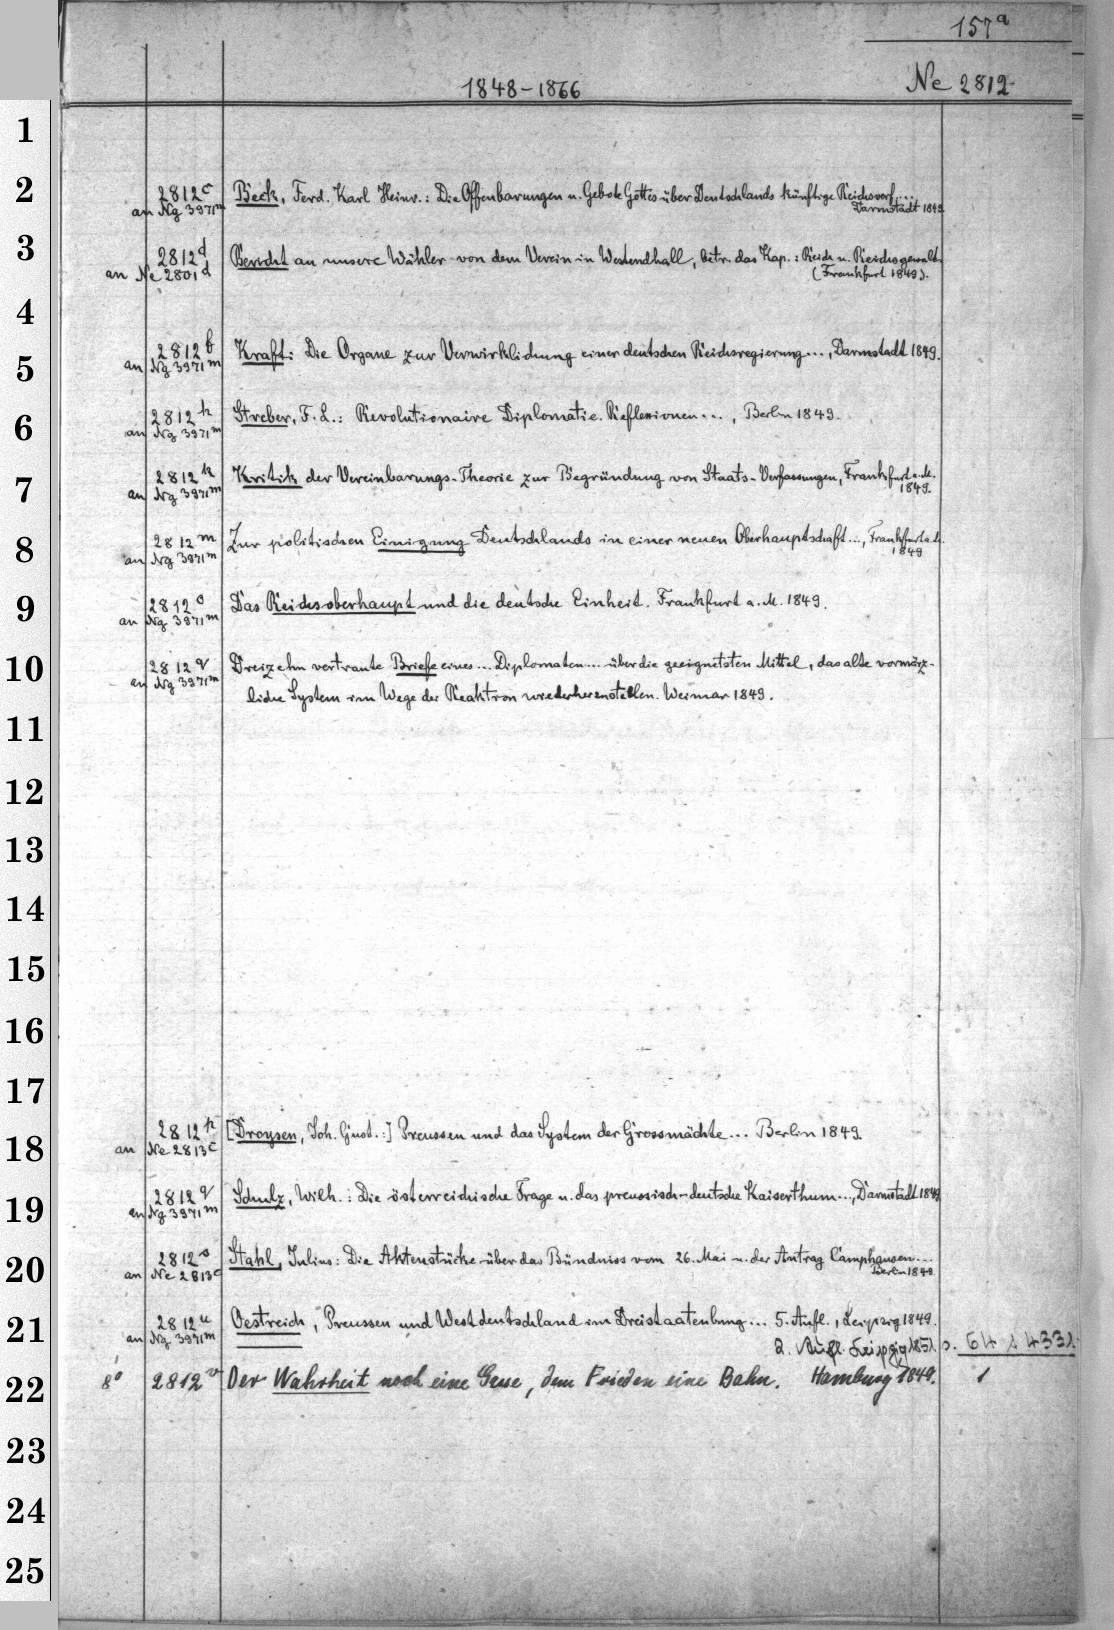 157a
1848-1866 Ne 2812.
1
2 2812c Beck, Ferd. Karl Heinr.: Die Offenbarungen u. Gebote Gottes über Deutschlands künftige Reichsverf....
an Ng 3971m Darmstadt 1849
3 2812d Bericht an unsere Wähler von dem Verein in Westendhall, betr. das Kap.: Reich u. Reichsgewalt.
an Ne 2801d (Frankfurt 1849).
4
5 2812f Kraft: Die Organe zur Verwirklichung einer deutschen Reichsregierung..., Darmstadt 1849.
an Ng 3971m
6 2812h Streber, F. L.: Revolutionaire Diplomatie. Reflexionen..., Berlin 1849.
an Ng 3971m
7 2812k Kritik der Vereinbarungs-Theorie zur Begründung von Staats-Verfassungen, Frankfurt a. M.
an Ng 3971m 1849.
8 2812m Zur politischen Einigung Deutschlands in einer neuen Oberhauptschaft..., Frankfurt a. M.
an Ng 3971m 1849
9 2812o Das Reichsoberhaupt und die deutsche Einheit. Frankfurt a. M. 1849.
an Ng 3971m
10 2812q Dreizehn vertraute Briefe eines... Diplomaten.... über die geeignetsten Mittel, das alte vormärz-
an Ng 3971m liche System im Wege der Reaktion wiederherzustellen. Weimar 1849.
11
12
13
14
15
16
17
18 2812p [Droysen, Joh. Gust.:] Preussen und das System der Grossmächte... Berlin 1849.
an Ne 2813c
19 2812q Schulz, Wilh.: Die österreichische Frage u. das preussisch-deutsche Kaiserthum..., Darmstadt 1849
an Ng 3971m
20 2812s Stahl, Julius: Die Aktenstücke über das Bündniss vom 26. Mai u. der Antrag Camphausen...
an Ne 2813c Berlin 1849.
21 2812u Oestreich, Preussen und Westdeutschland im Dreistaatenbung... 5. Aufl., Leipzig 1849.
an Ng 3971m 2. Aufl. Leipzig 1851 s. 64 4332.
22 8° 2812v Der Wahrheit noch eine Gasse, dem Frieden eine Bahn. Hamburg 1849. 1
23
24
25